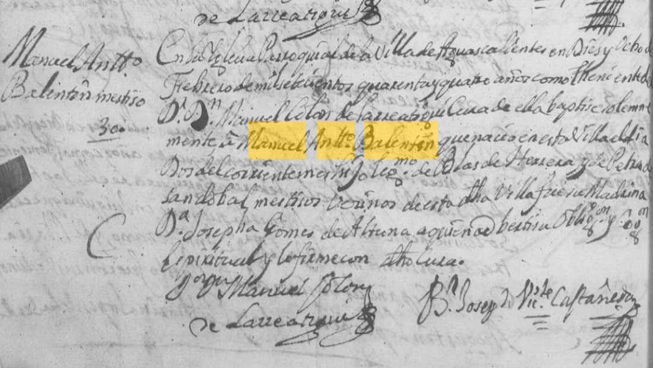 de Larreategui
Manuel Antto
Balentin mestiso
30.
En la Yglecia Parroquial de la Villa de Aguascalientes en Dies y Ocho de
Febrero de mil setecientos quarenta y quatro años como Theniente de
Dr. Dn. Manuel Colon de Larreategui Cura de ella baptise solemne
mente à Manuel Antto. Balentin que nacio en esta Villa el dia
Dos del corriente mes hijo legmo de Blas de Herrera y de Petrona
sandobal mestisos vecinos de esta dha Villa fue su Madrina
Da. Josepha Gomes de Altuna a quien adverti su Oblign y
espiritual y lo firme con dho Cura.
Manuel Colon
de Larreategui
Br. Joseph Victe Castañeda